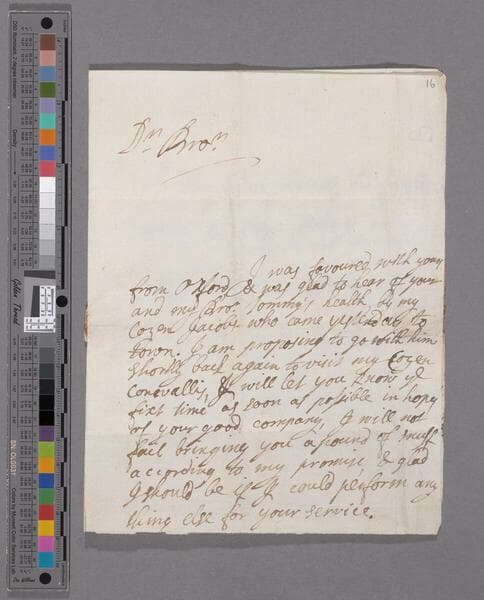 16
Dr Bror
I was favoured with yours
from Oxford, & was glad to hear of your
and my Bror Tommy's health by my
Cozen Jacobs who came yesterday to
town. I am proposing to go with him
shortly back again to visit my Cozen
, & will let you know ye
first time as soon as possible in hopes
of your good company, I will not
fail bringing you a pound of snuff
according to my promise & glad
I should be if I could perform any
thing else for your service.
Golden Thread